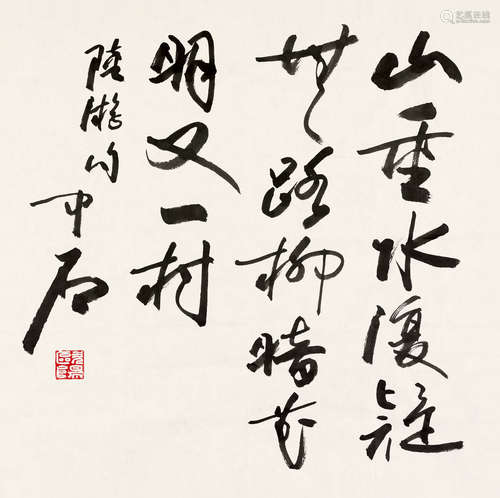 山重水復疑
無路柳暗花
明又一村
陸游句中石